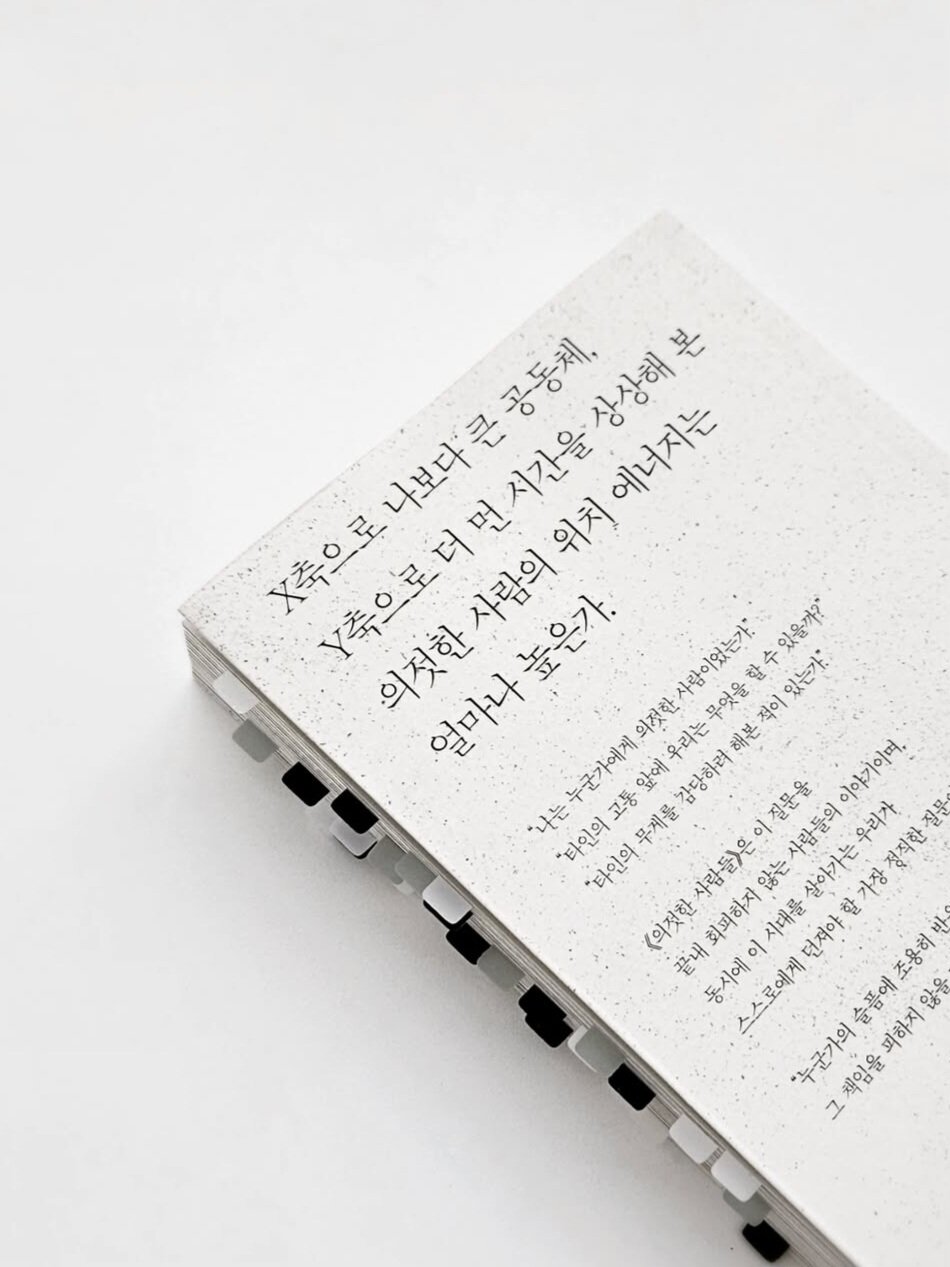 X축으로 나보다 큰 공동체,
Y축으로 더 먼 시간을 상상해 본
의젓한 사람의 위치 에너지는
얼마나 높은가.
“나는 누군가에게 의젓한 사람이었는가.”
“타인의 고통 앞에 우리는 무엇을 할 수 있을까?”
“타인의 무게를 감당하려 해본 적이 있는가.”
《의젓한 사람들》은 이 질문을
끝내 회피하지 않는 사람들의 이야기이며,
동시에 이 시대를 살아가는 우리가
스스로에게 던져야 할 가장 정직한 질문
“누군가의 슬픔에 조용히
그 책임을 피하지 않을